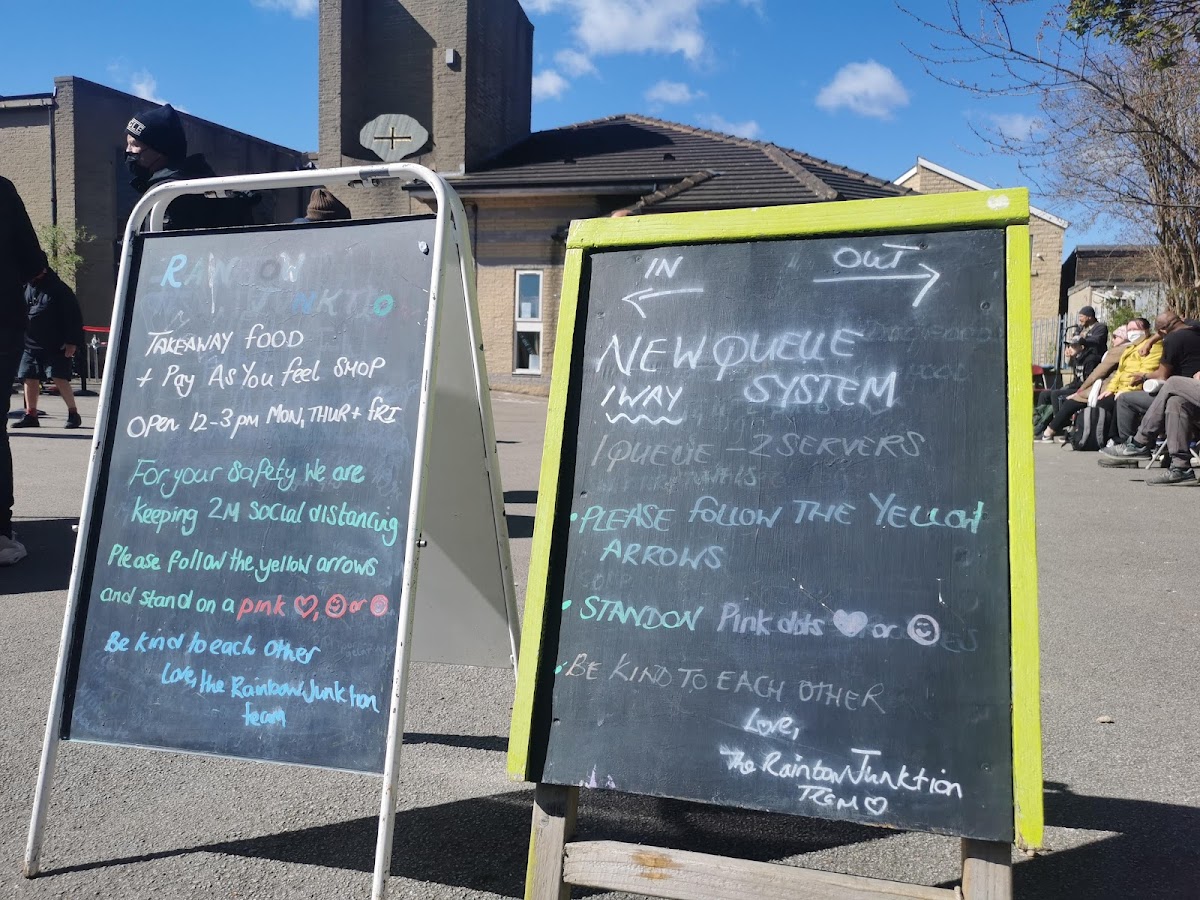 RAINBOW
JUNKTION
TAKEAWAY FOOD
+ PAY AS YOU FEEL SHOP
OPEN 12-3PM MON, THUR + FRI
For your safety we are
keeping 2M social distancing
Please follow the yellow arrows
and stand on a pink ♡, ☺ or ☺
Be kind to each other
Love, the Rainbow Junktion
team
IN
OUT
←
→
NEW QUEUE
1 WAY SYSTEM
1 QUEUE - 2 SERVERS
• PLEASE FOLLOW THE YELLOW
ARROWS
• STAND ON Pink dots ♥ or ☺
• BE KIND TO EACH OTHER
Love,
The Rainbow Junktion
TEAM ♡